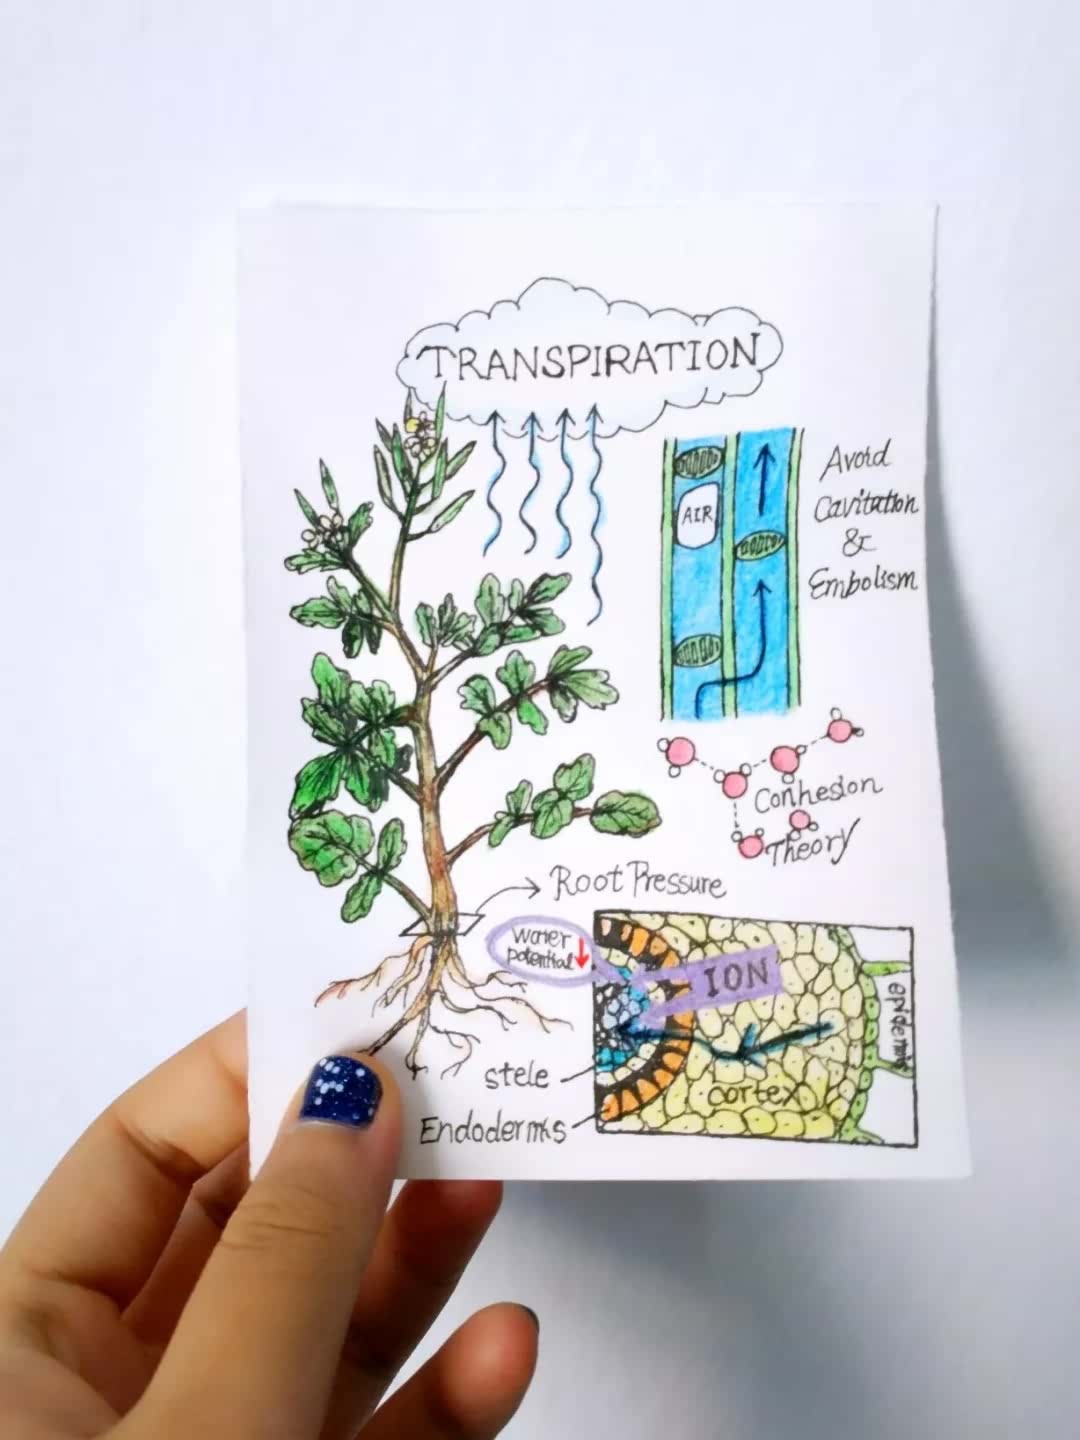 TRANSPIRATION
AIR
Avoid
Cavitation
&
Embolism
Conhesion
Theory
Root Pressure
Water
potential
ION
epidermis
stele
cortex
Endodermis